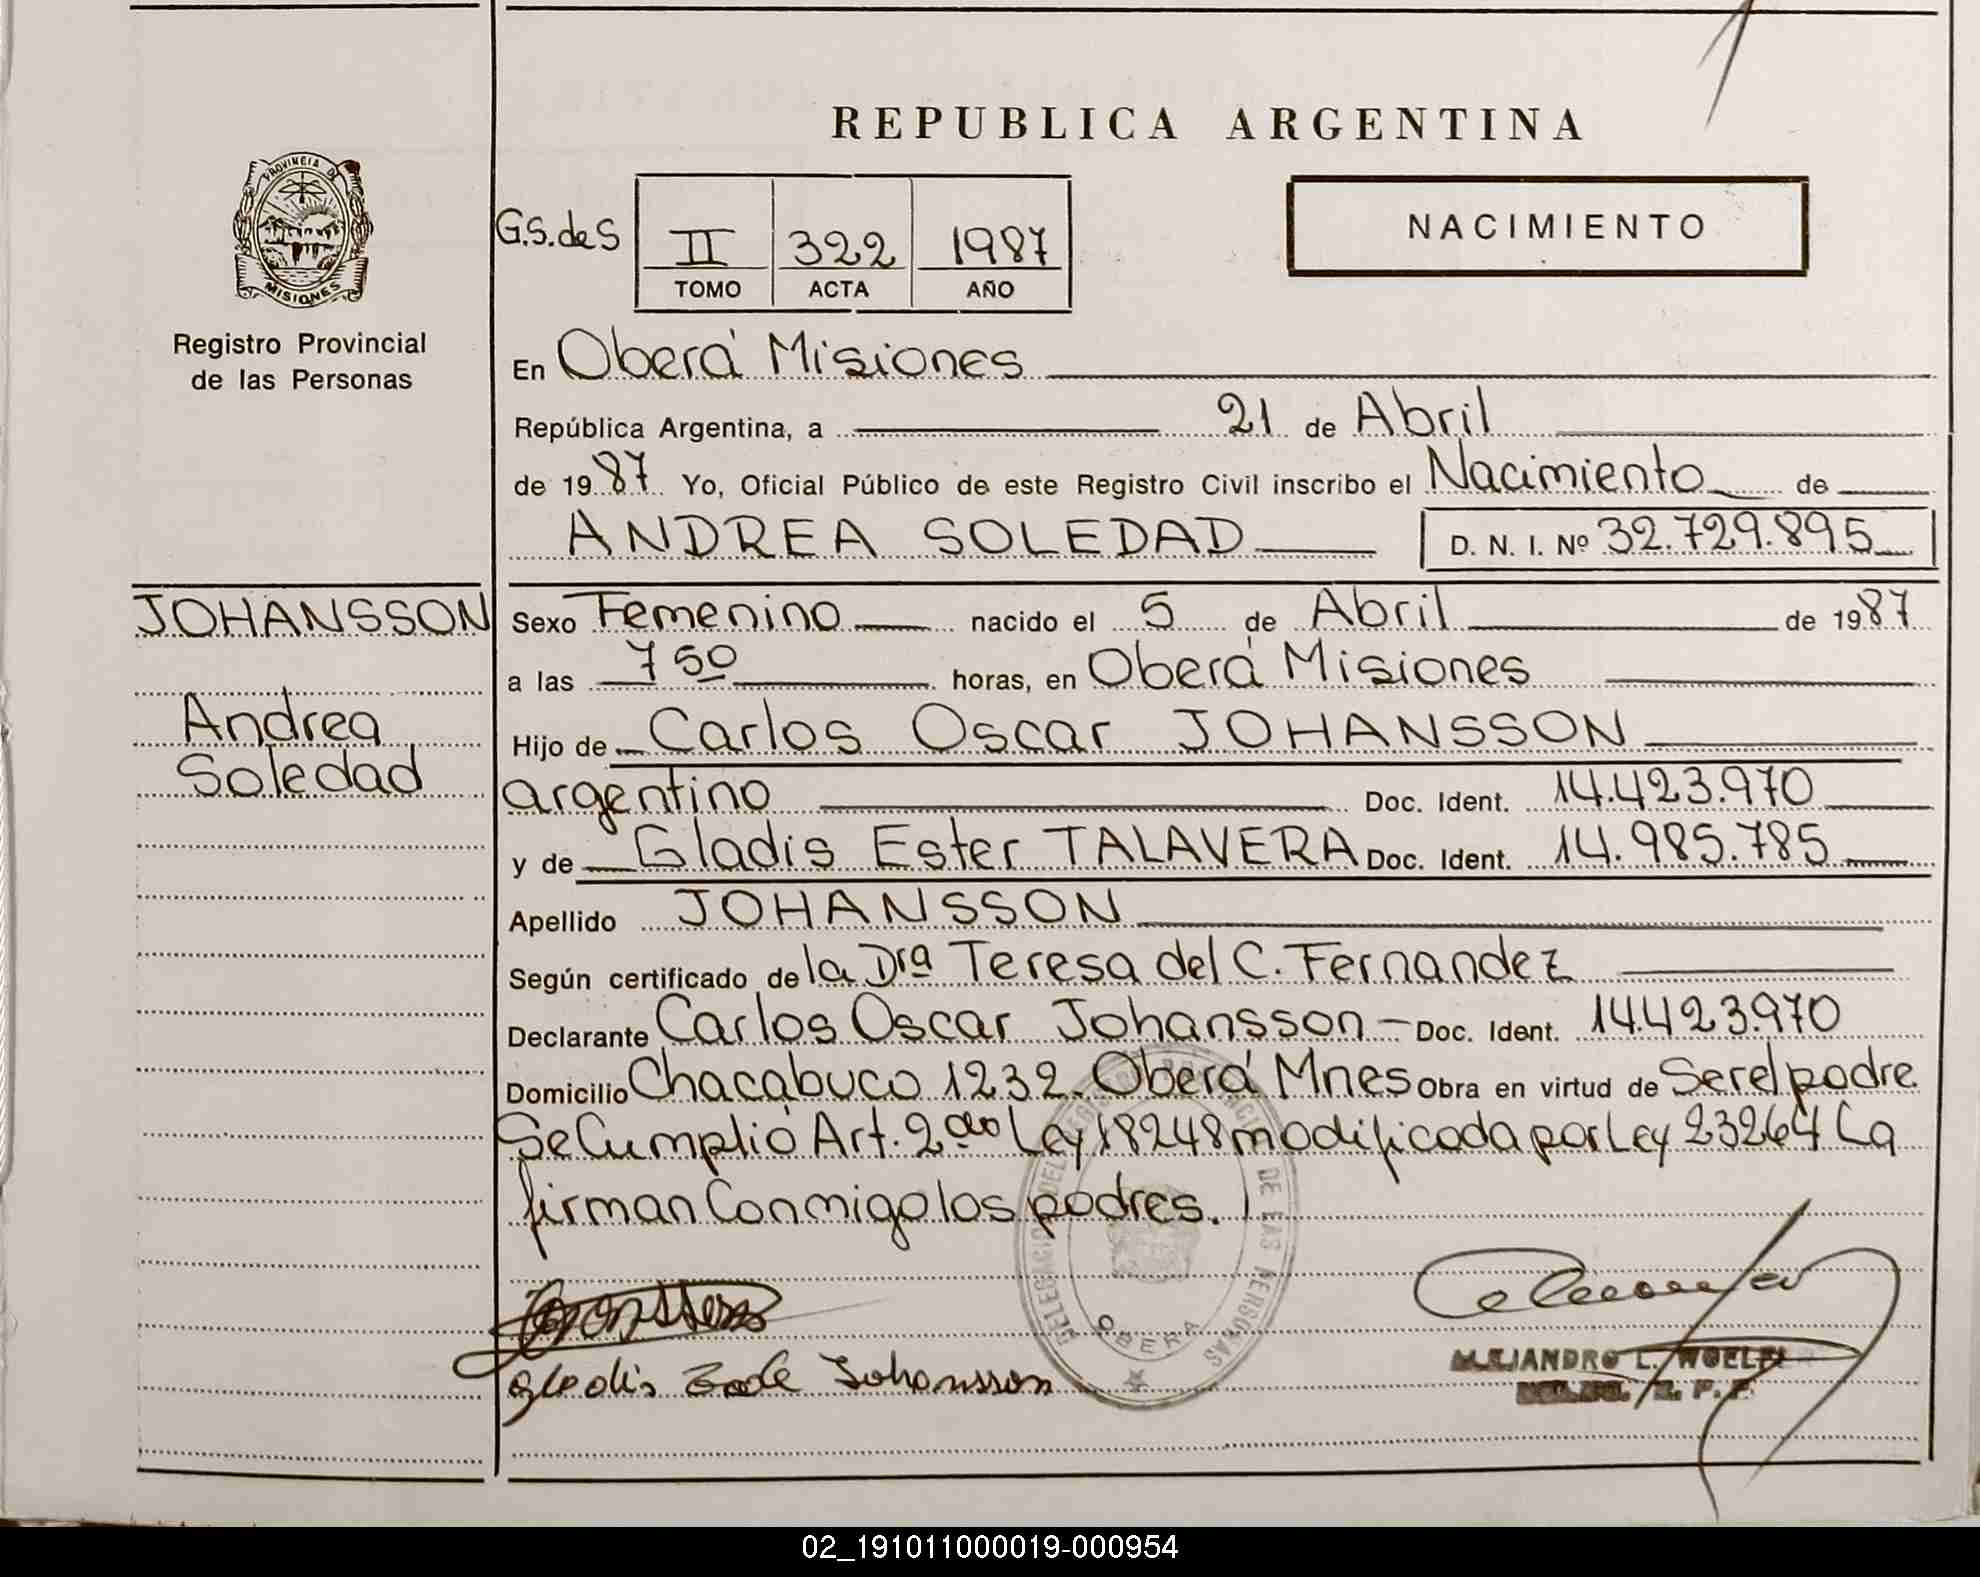 REPUBLICA ARGENTINA
PROVINCIA DE
MISIONES
Registro Provincial
de las Personas
G.S. de S
II 322 1987
TOMO ACTA AÑO
NACIMIENTO
En Oberá Misiones
República Argentina, a 21 de Abril
de 1987 Yo, Oficial Público de este Registro Civil inscribo el Nacimiento de
ANDREA SOLEDAD D. N. I. Nº 32.729.895
JOHANSSON
Andrea
Soledad
Sexo Femenino nacido el 5 de Abril de 1987
a las 7 50 horas, en Oberá Misiones
Hijo de Carlos Oscar JOHANSSON
argentino Doc. Ident. 14.423.970
y de Gladis Ester TALAVERA Doc. Ident. 14.985.785
Apellido JOHANSSON
Según certificado de la Dra Teresa del C. Fernandez
Declarante Carlos Oscar Johansson - Doc. Ident. 14.423.970
Domicilio Chacabuco 1232. Oberá Mnes Obra en virtud de Ser el padre
Se Cumplió Art. 2do Ley 18248 modificada por Ley 23264 La
firman Conmigo los padres.
DELEGACION DEL REGISTRO PROVINCIAL DE LAS PERSONAS
OBERA
Johansson
ALEJANDRO L.
02_191011000019-000954